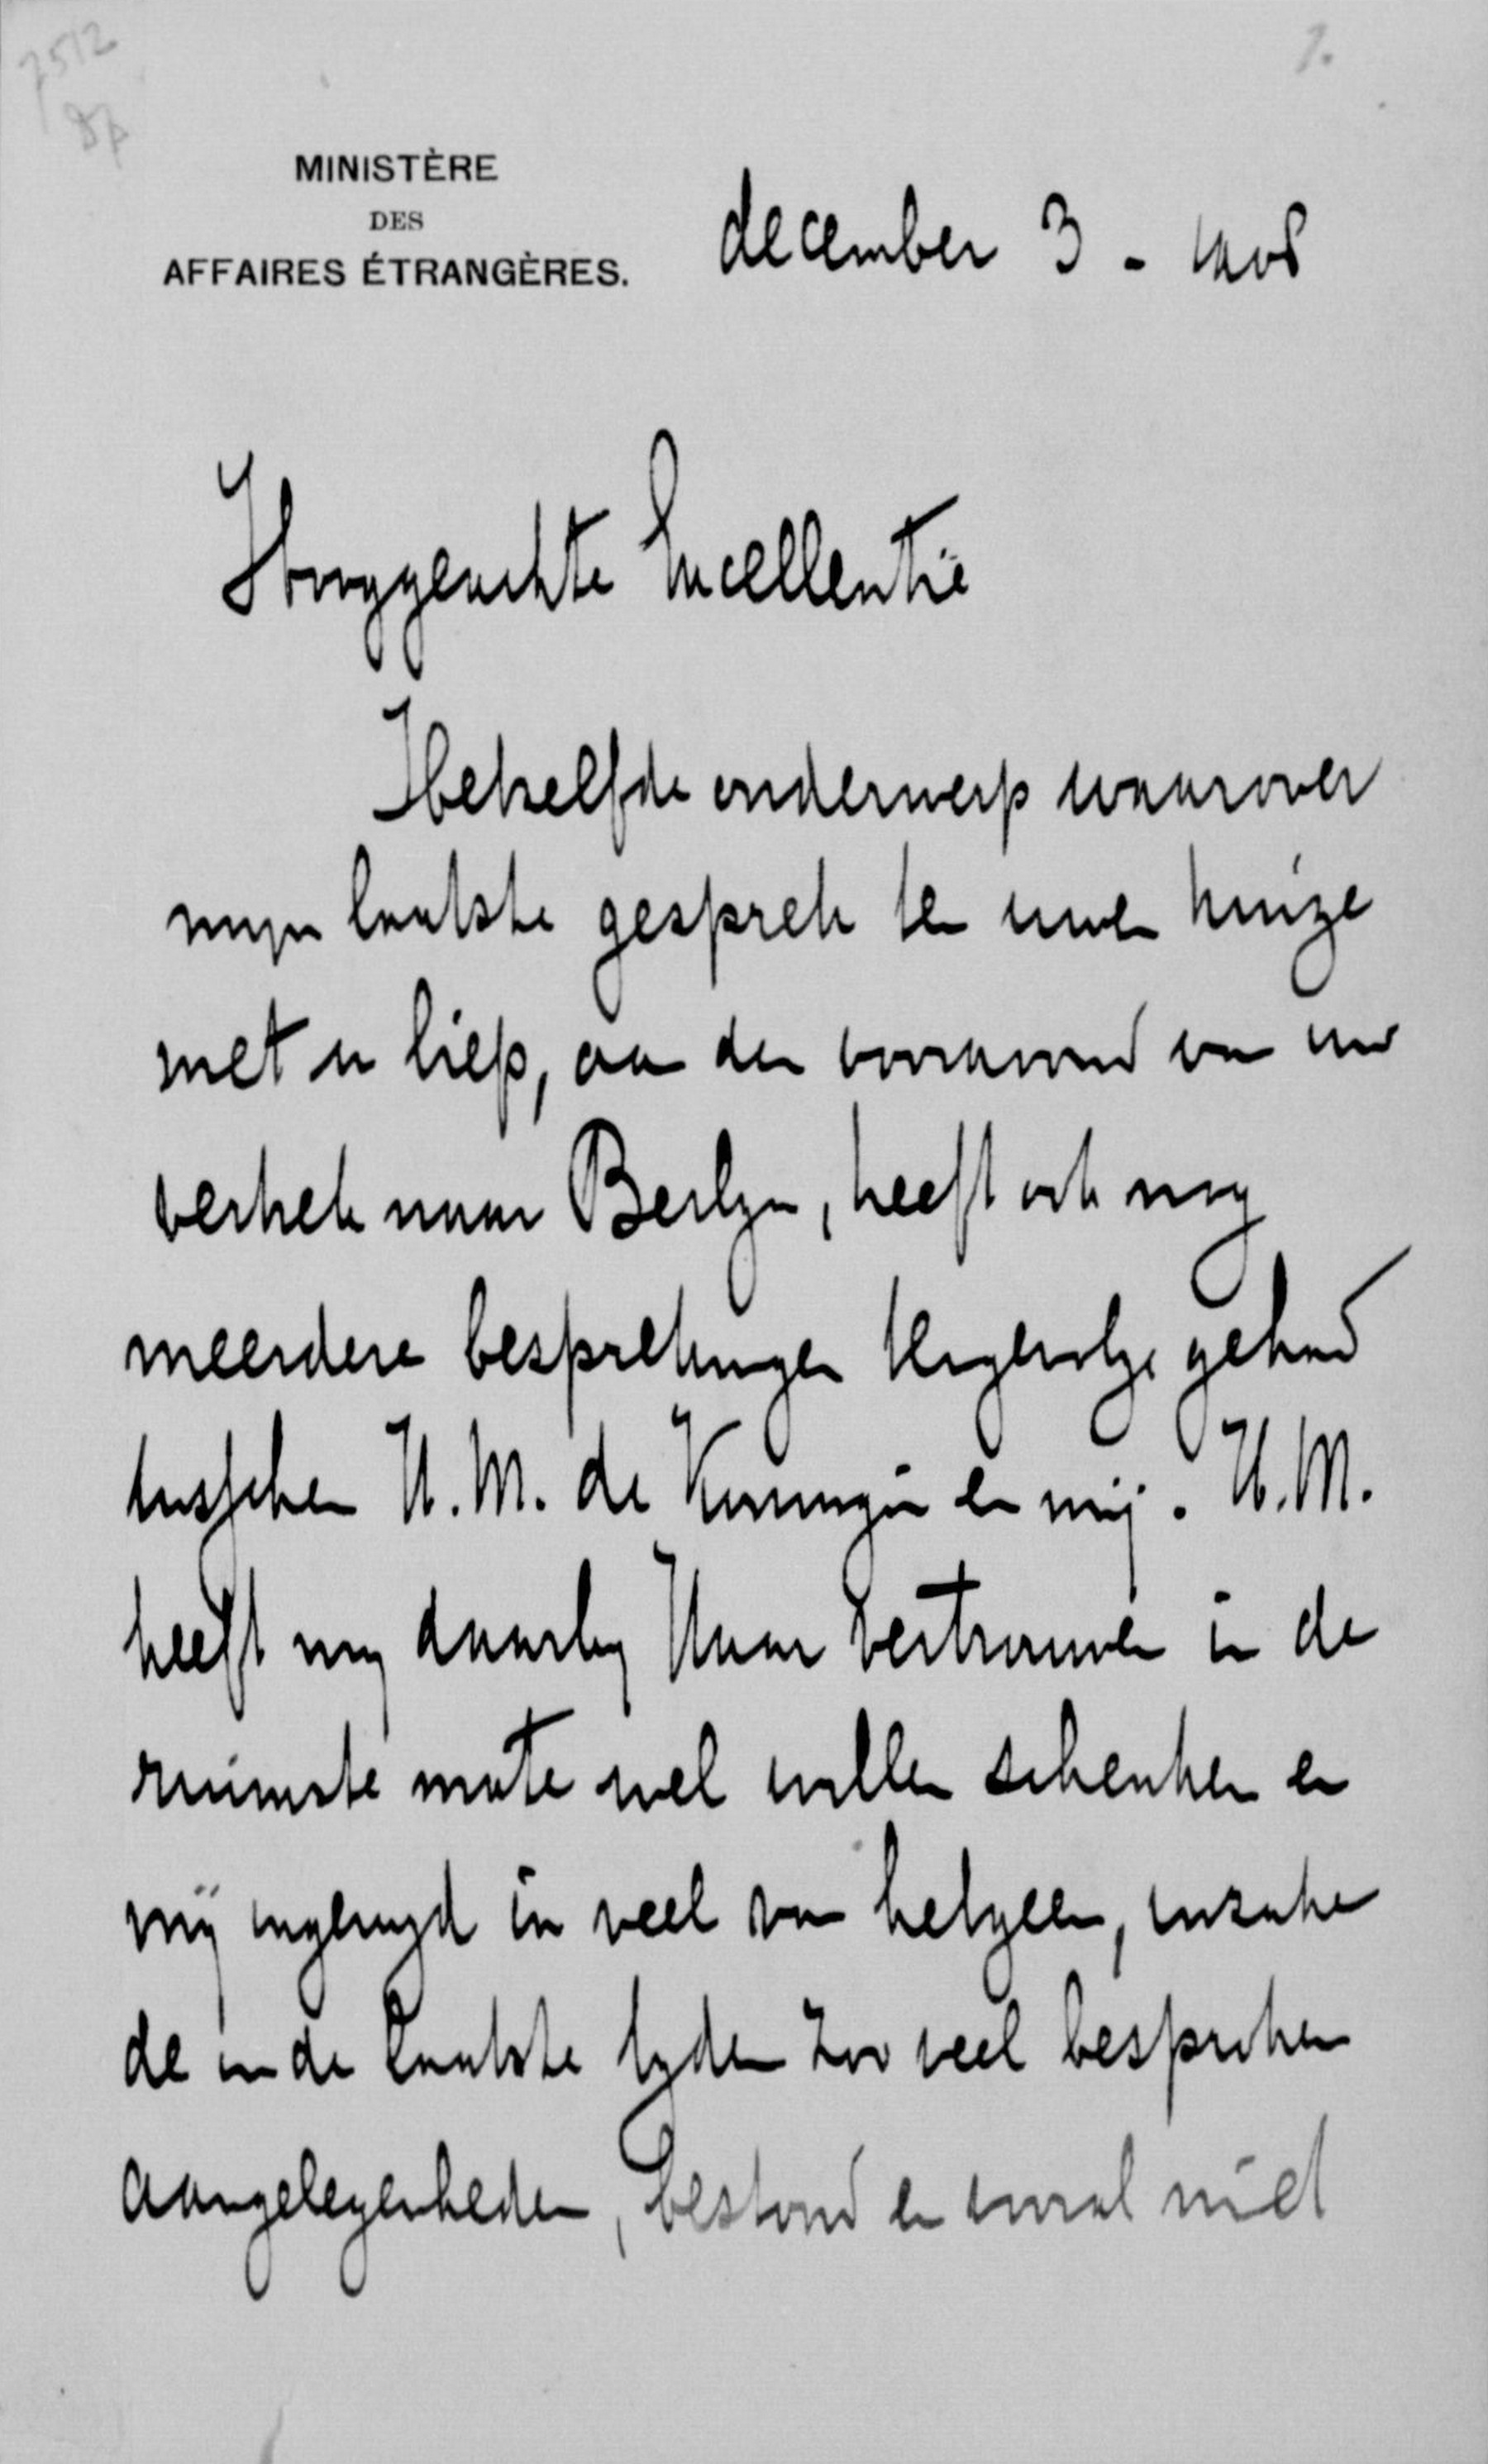 7512
1.
MINISTÈRE
DES
AFFAIRES ÉTRANGÈRES.
december 3 - 1908
Hooggeachte Excellentie
Hetzelfde onderwerp waarover
mijn laatste gesprek ten uwen huize
met u liep, aan den vooravond van uw
vertrek naar Berlijn, heeft ook nog
meerdere besprekingen tengevolge gehad
tusschen H.M. de Koningin en mij. H.M.
heeft my daarby Haar vertrouwen in de
ruimste mate wel willen schenken en
mij ingewyd in veel van hetgeen, inzake
de in de laatste tyden zoo veel besproken
aangelegenheden, bestond en vooral niet